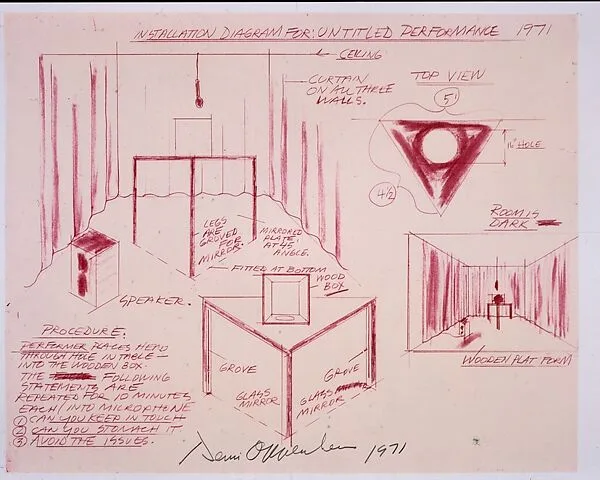 INSTALLATION DIAGRAM FOR: UNTITLED PERFORMANCE 1971
CEILING
CURTAIN
ON ALL THREE
WALLS.
TOP VIEW
5'
16" HOLE
4 1/2
LEGS
ARE
GROVED
FOR
MIRRORS.
MIRRORED
PLATE
AT 45
ANGLE.
FITTED AT BOTTOM
WOOD
BOX
SPEAKER.
ROOM IS
DARK
WOODEN PLATFORM
GROVE
GROVE
GLASS
MIRROR
GLASS
MIRROR
PROCEDURE:
PERFORMER PLACES HEAD
THROUGH HOLE IN TABLE —
INTO THE WOODEN BOX.
THE FOLLOWING
STATEMENTS ARE
REPEATED FOR 10 MINUTES
EACH/INTO MICROPHENE
① CAN YOU KEEP IN TOUCH
② CAN YOU STOMACH IT
③ AVOID THE ISSUES.
Dennis Oppenheim 1971